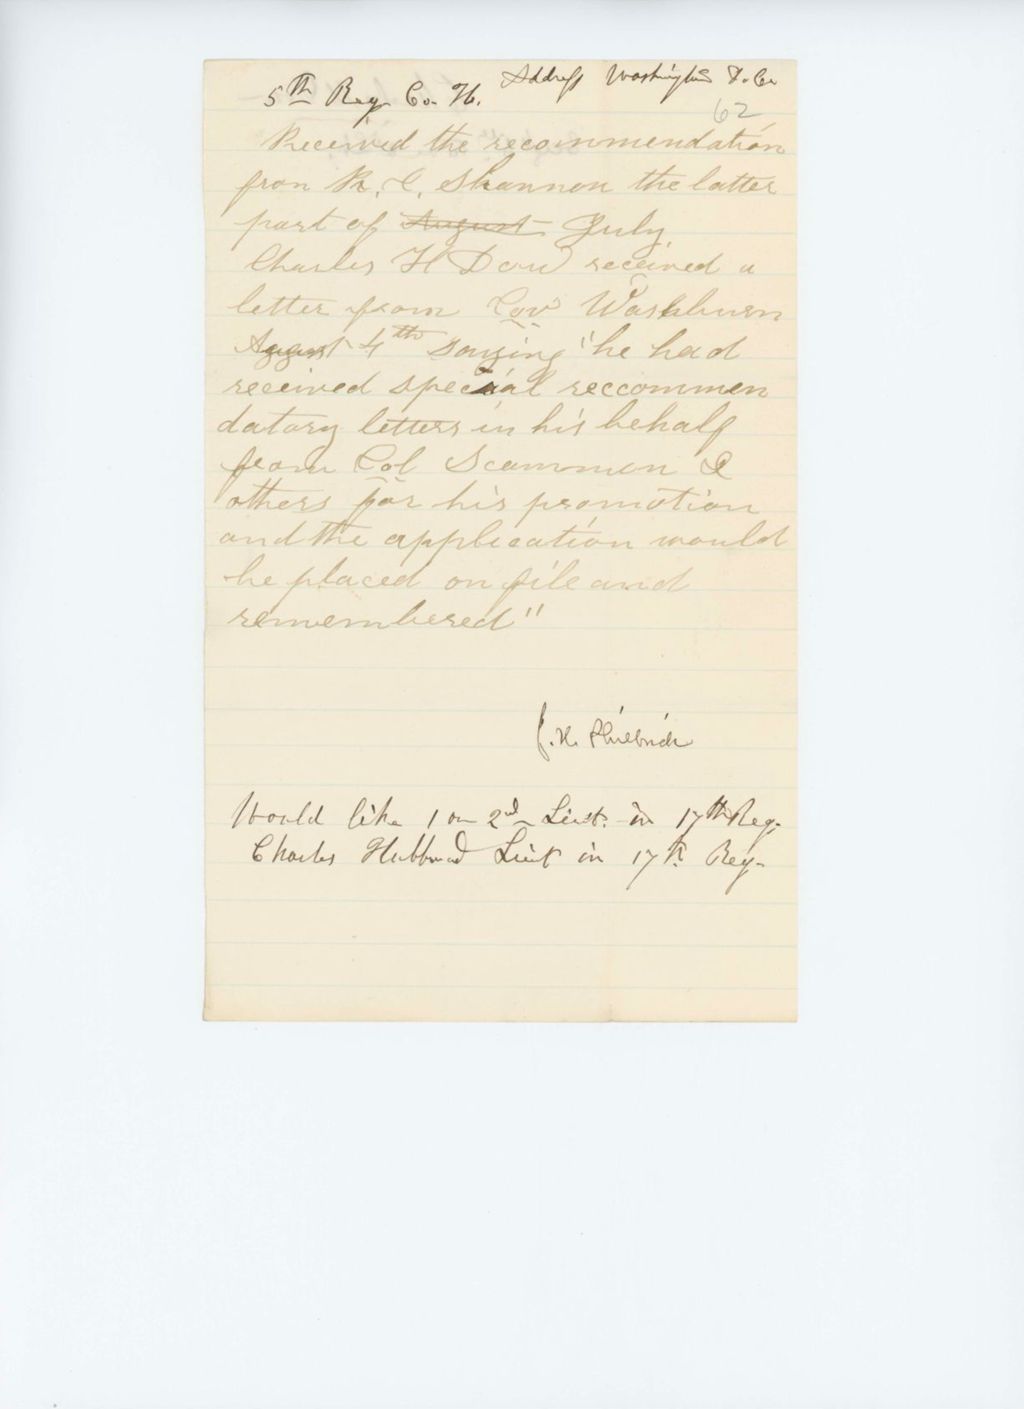 Address Washington D. C.
5th Reg. Co. H.
62
Received the recommendation
fron R. C. Shannon the latter
part of August July,
Charles H Dow received a
letter from Gov Washburn
August 4th saying "he had
received special reccommen
datory letters in his behalf
from Col Scammon &
others for his promotion
and the application would
be placed on file and
remembered"
J. K. Philbrick
Would like 1 or 2d Lieut. in 17th Reg.
Charles Hubbard Lieut in 17th Reg.